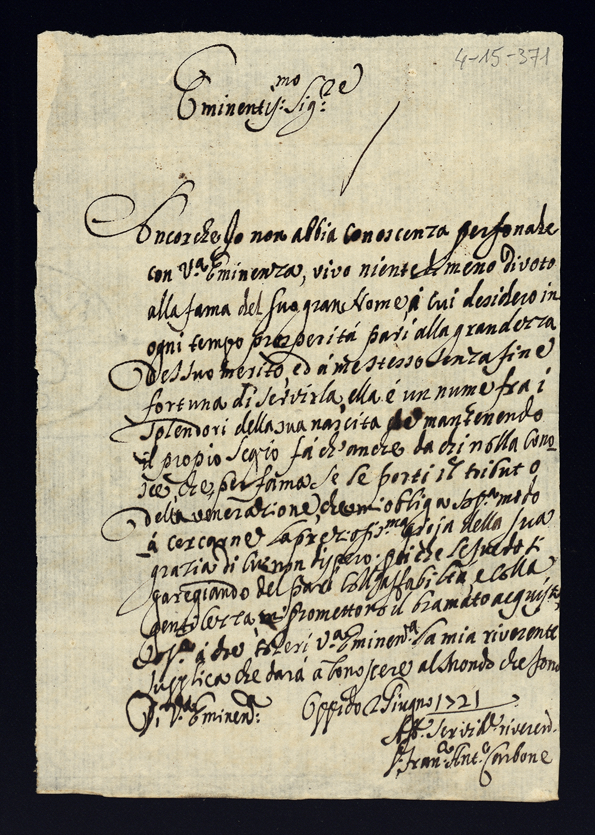 4-15-371
Eminentis:mo Sig:re
Ancorche Io non abbia conoscenza personale
con V.a Eminenza, vivo nientedimeno divoto
alla fama del suo gran Nome, à cui desidero in
ogni tempo prosperità pari alla grandezza
del suo merito, ed à me stesso senza fine
fortuna di servirla, ella è un nume fra i
splendori della sua nascita che mantenendo
il propio seg̃io fà ch'anche da chi nolla cono-
sce, che per fama se le porti il tributo
della venerazione, che mi obliga sop.a modo
à cercarne la preziosis.ma gioja della sua
grazia
pareggiando del pari coll'affabilità, e colla
gentilezza mi promettono il bramato acquisto,
à che V.a Eminen.a la mia riverente
supplica che darà à conoscere al Mondo che sono
Di V.a Eminen.a Oppido 2 Giugno 1721
riverend.
Fran.o Ant.o Carbone